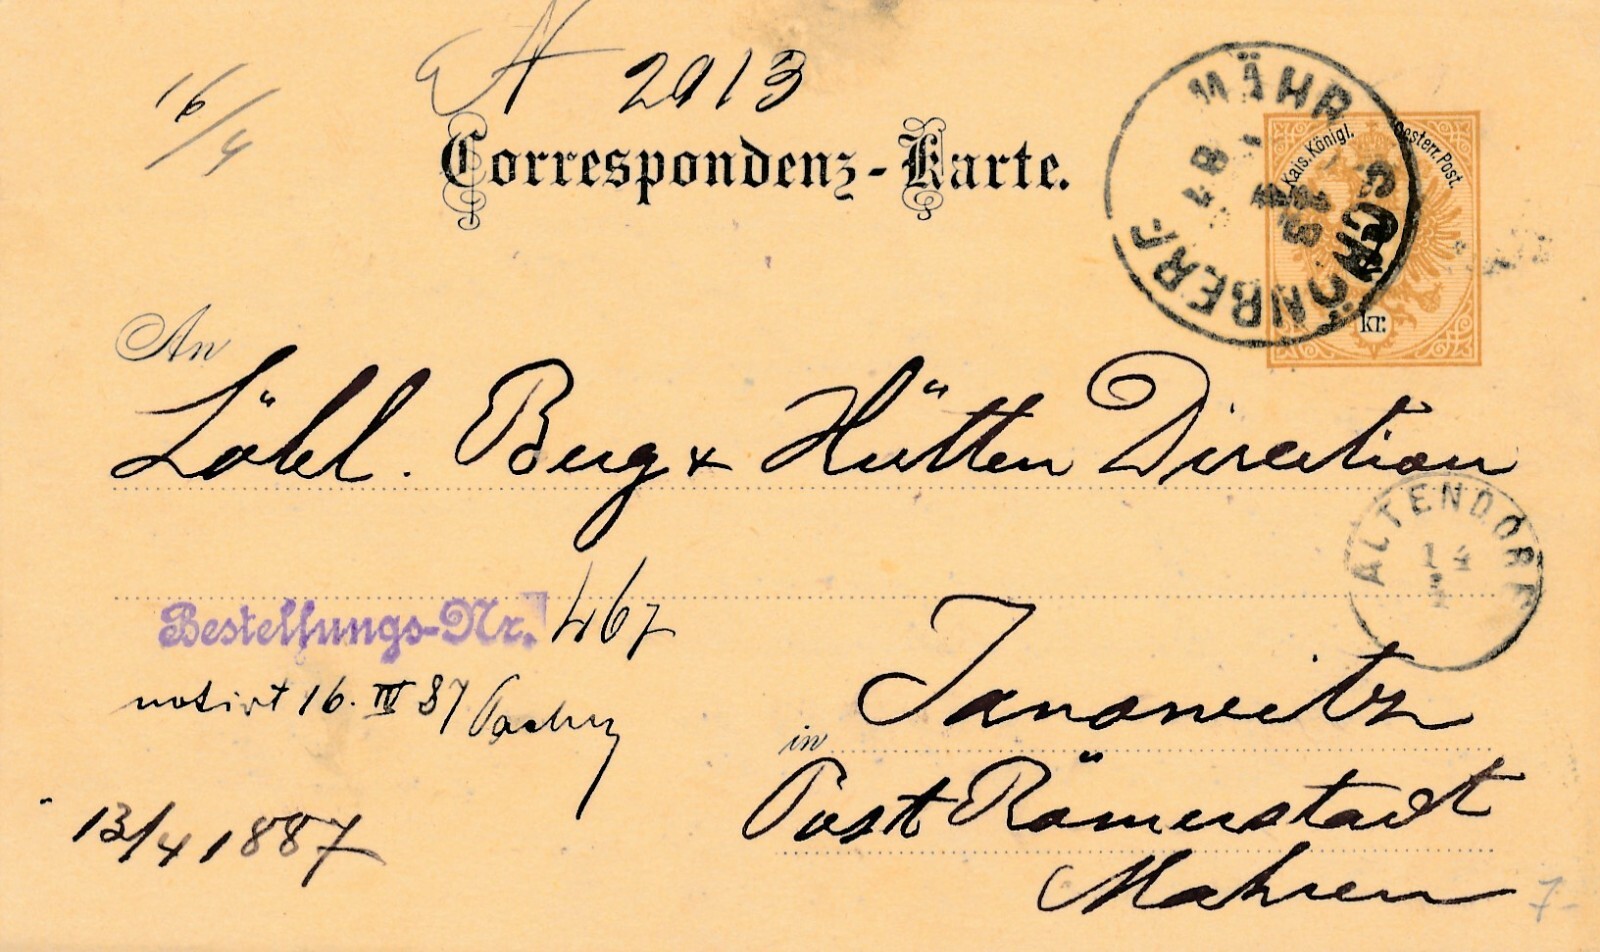 16/4
N 2913
Correspondenz-Karte.
MÄHR. SCHÖNBERG
13 4 87
Kais. Königl. Oesterr. Post.
kr.
An
Löbl. Berg & Hütten Direction
ALTENDORF
14 4
Bestellungs-Nr. 467
notirt 16. IV 87
in Janowitz
Post Römerstadt
Mähren
13/4 1887
7-